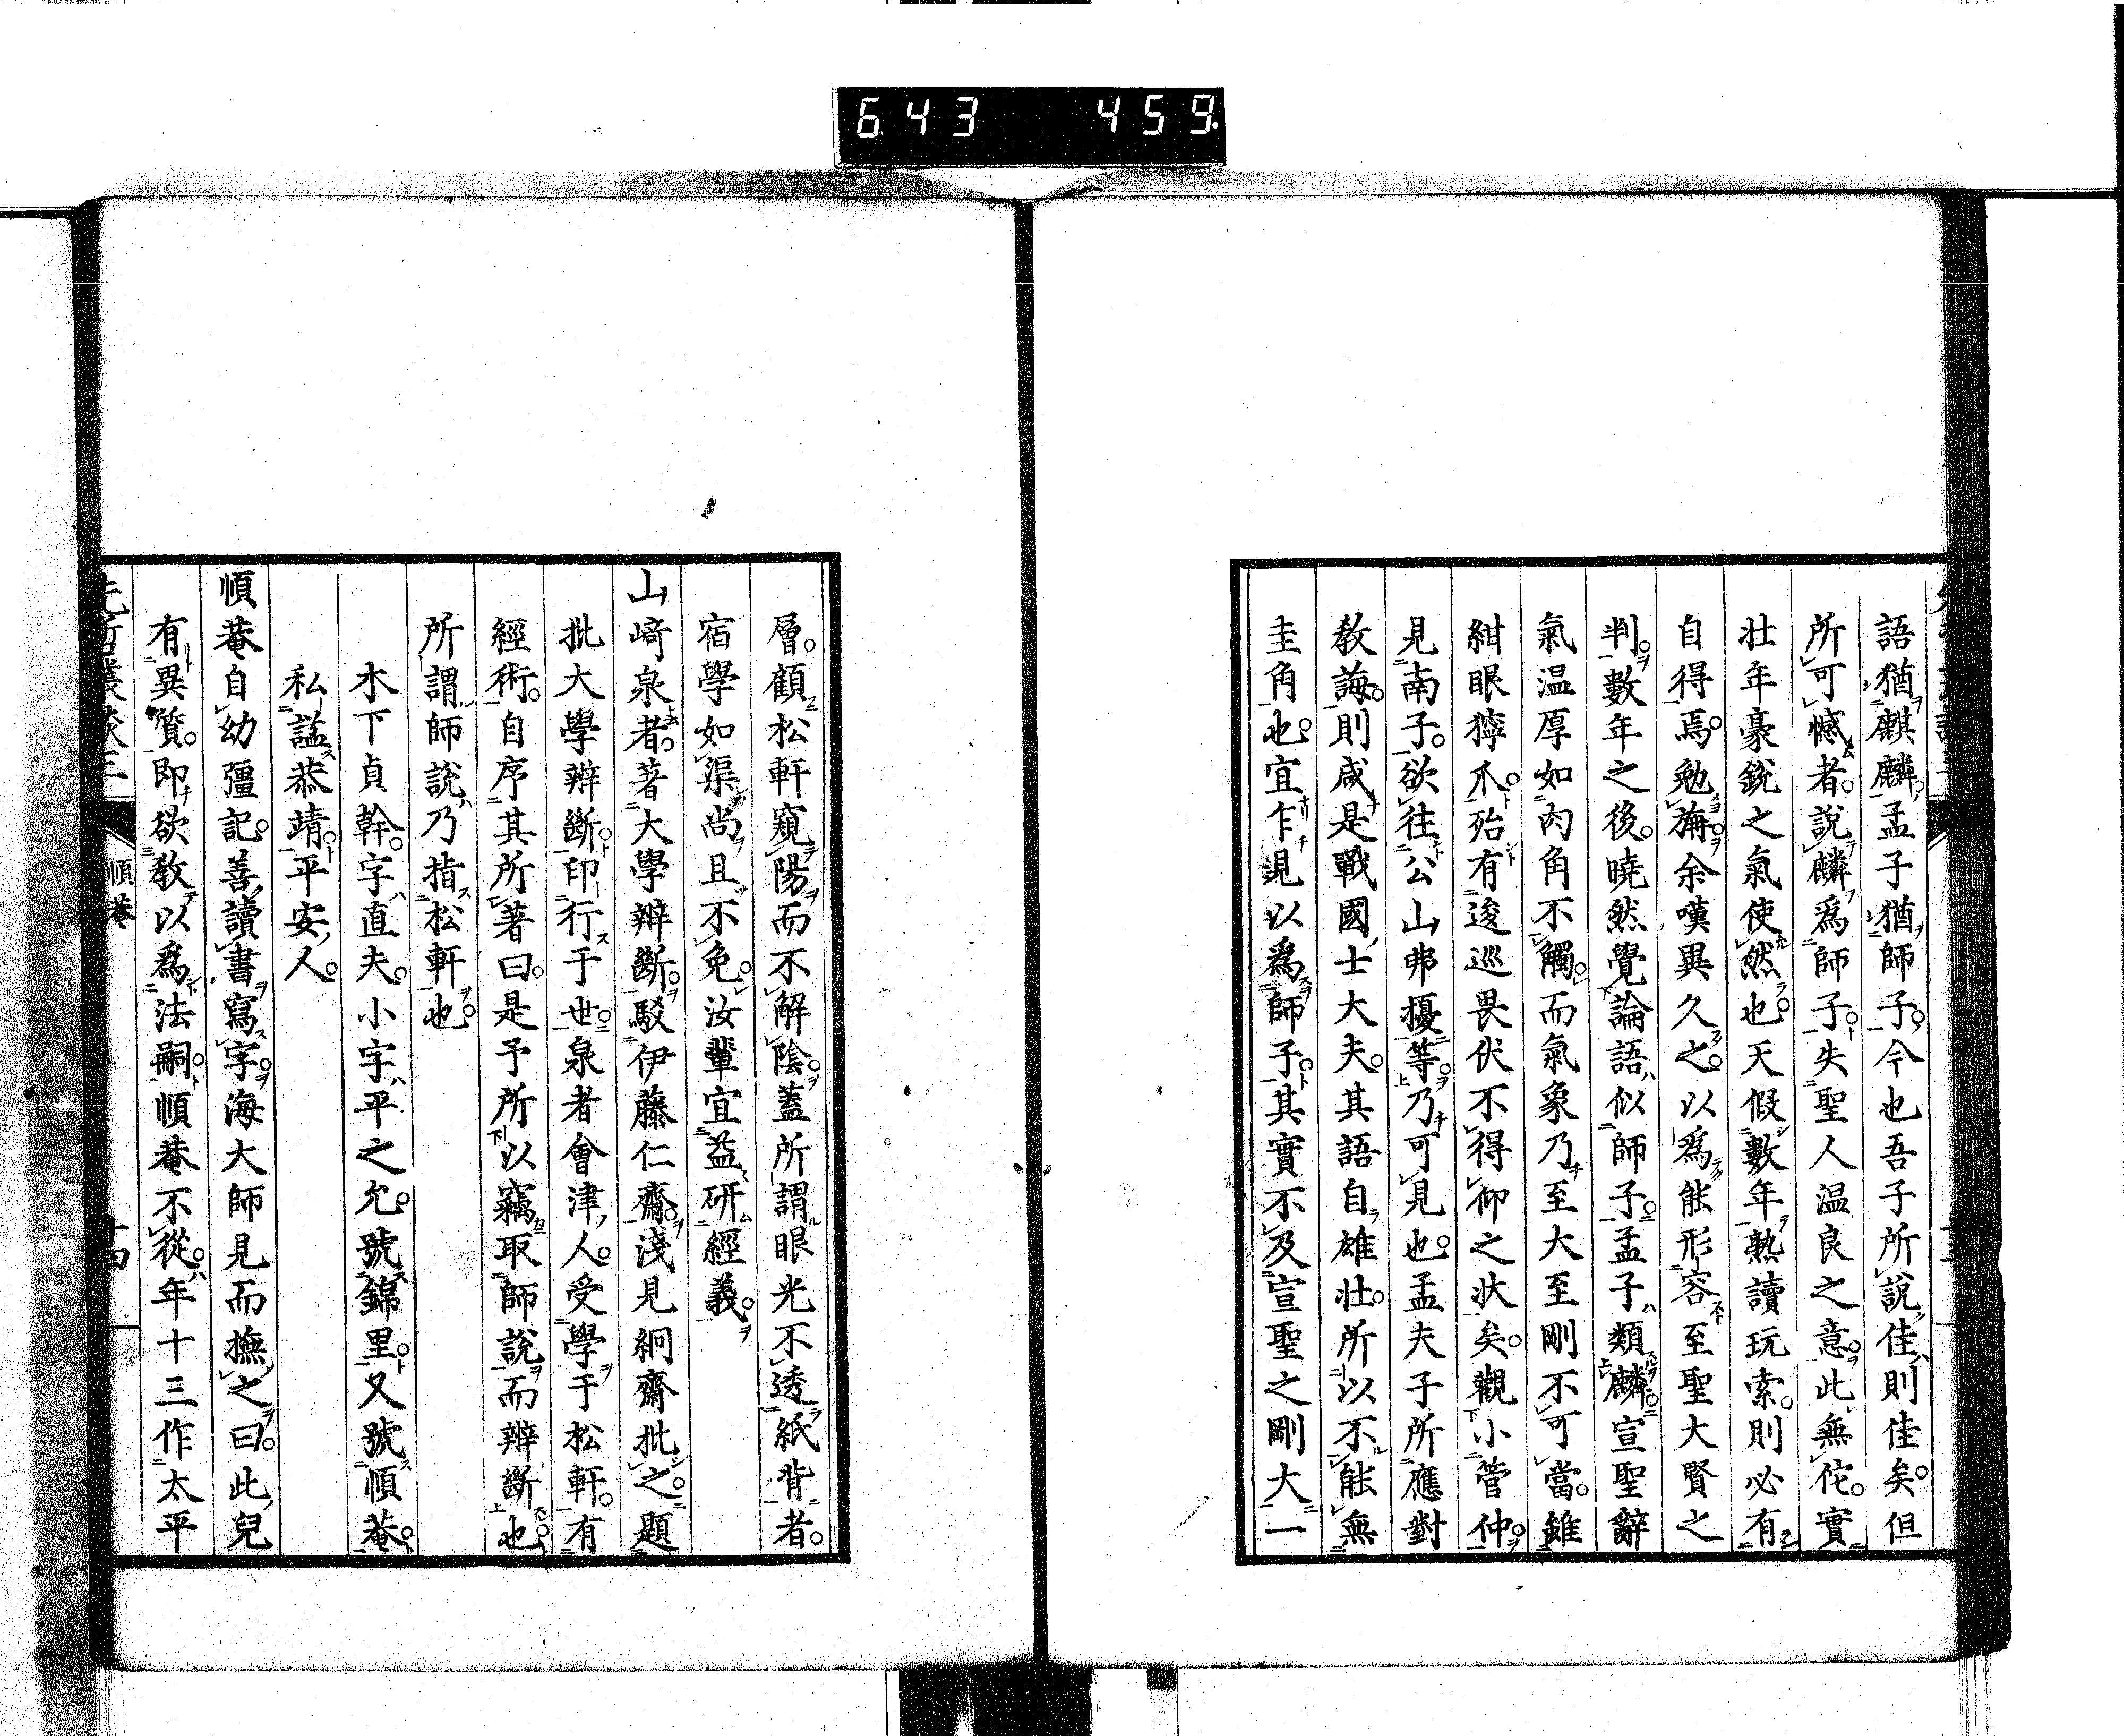 643 459
語猶麒麟。孟子猶師子。今也吾子所説佳則佳矣。但
所可憾者。説麟爲師子。失聖人温良之意。此無佗。實
壮年豪鋭之氣使然也。天假數年。熟讀玩索。則必有
自得焉。勉旃。余嘆異久之。以爲能形容至聖大賢之
判。數年之後。曉然覺論語似師子。孟子類麟。宣聖辭
氣温厚如肉角不觸。而氣象乃至大至剛不可當。雖
紺眼獰爪。殆有逡巡畏伏不得仰之状矣。觀小管仲。
見南子。欲往公山弗擾等。乃可見也。孟夫子所應對
教誨。則咸是戰國士大夫。其語自雄壮。所以不能無
圭角也。宜乍見以爲師子。其實不及宣聖之剛大一
層。顧松軒窺陽而不解陰。蓋所謂眼光不透紙背者。
宿學如渠尚且不免。汝輩宜益研經義。
山﨑泉者。著大學辨斷。駁伊藤仁齋。淺見絅齋批之。題
批大學辨斷。印行于世。泉者會津人。受學于松軒。有
經術。自序其所著曰。是予所以竊取師説而辨斷也。
所謂師説乃指松軒也。
木下貞幹。字直夫。小字平之允。號錦里。又號順菴。
私謚恭靖。平安人。
順菴自幼彊記。善讀書寫字。海大師見而撫之曰。此兒
有異質。即欲教以爲法嗣。順菴不從。年十三作太平
順菴
十四